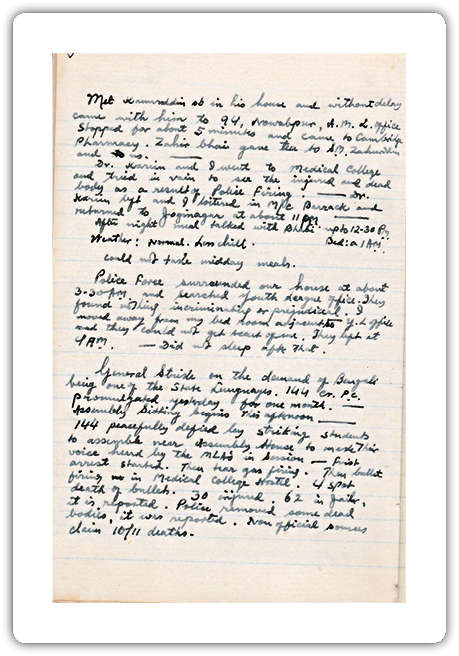 Met Kamruddin sb in his house and without delay
came with him to 94, Nawabpur, A.M.L. office
Stopped for about 5 minutes and came to Cambridge
Pharmacy. Zahir bhai gave tee to A.M. Zahiruddin
and us.
Dr. Karim and I went to Medical College
and tried in vain to see the injured and dead
body as a result of Police Firing — Dr.
Karim left and I loitered in M/C Barrack and
returned to Joginagar at about 11 PM.
After night meal talked with upto 12-30 P
Weather: Normal. Less chill. Bed: a 1 AM.
could not take midday meals.
Police Force surrounded our house at about
3-30 AM and searched Youth League office. They
found nothing incriminating or prejudicial. I
moved away from my bed room Y.L office
and they could not get heart of me. They left at
4 AM. — Did not sleep after that.
General Strike on the demand of Bengali
being one of the State Languages. 144 Cr. P.C.
Promulgated yesterday for one month. —
Assembly Sitting begins this afternoon
144 peacefully defied by striking students
to assemble near Assembly House to make their
voice heard by the MLAs in Session — First
arrest started. Then tear gas firing. Then bullet
firing in Medical College Hostel. 4 spot
death of bullets. 30 injured. 62 in jails,
it is reported. Police removed some dead
bodies, it was reported. Non official sources
claim 10/11 deaths.